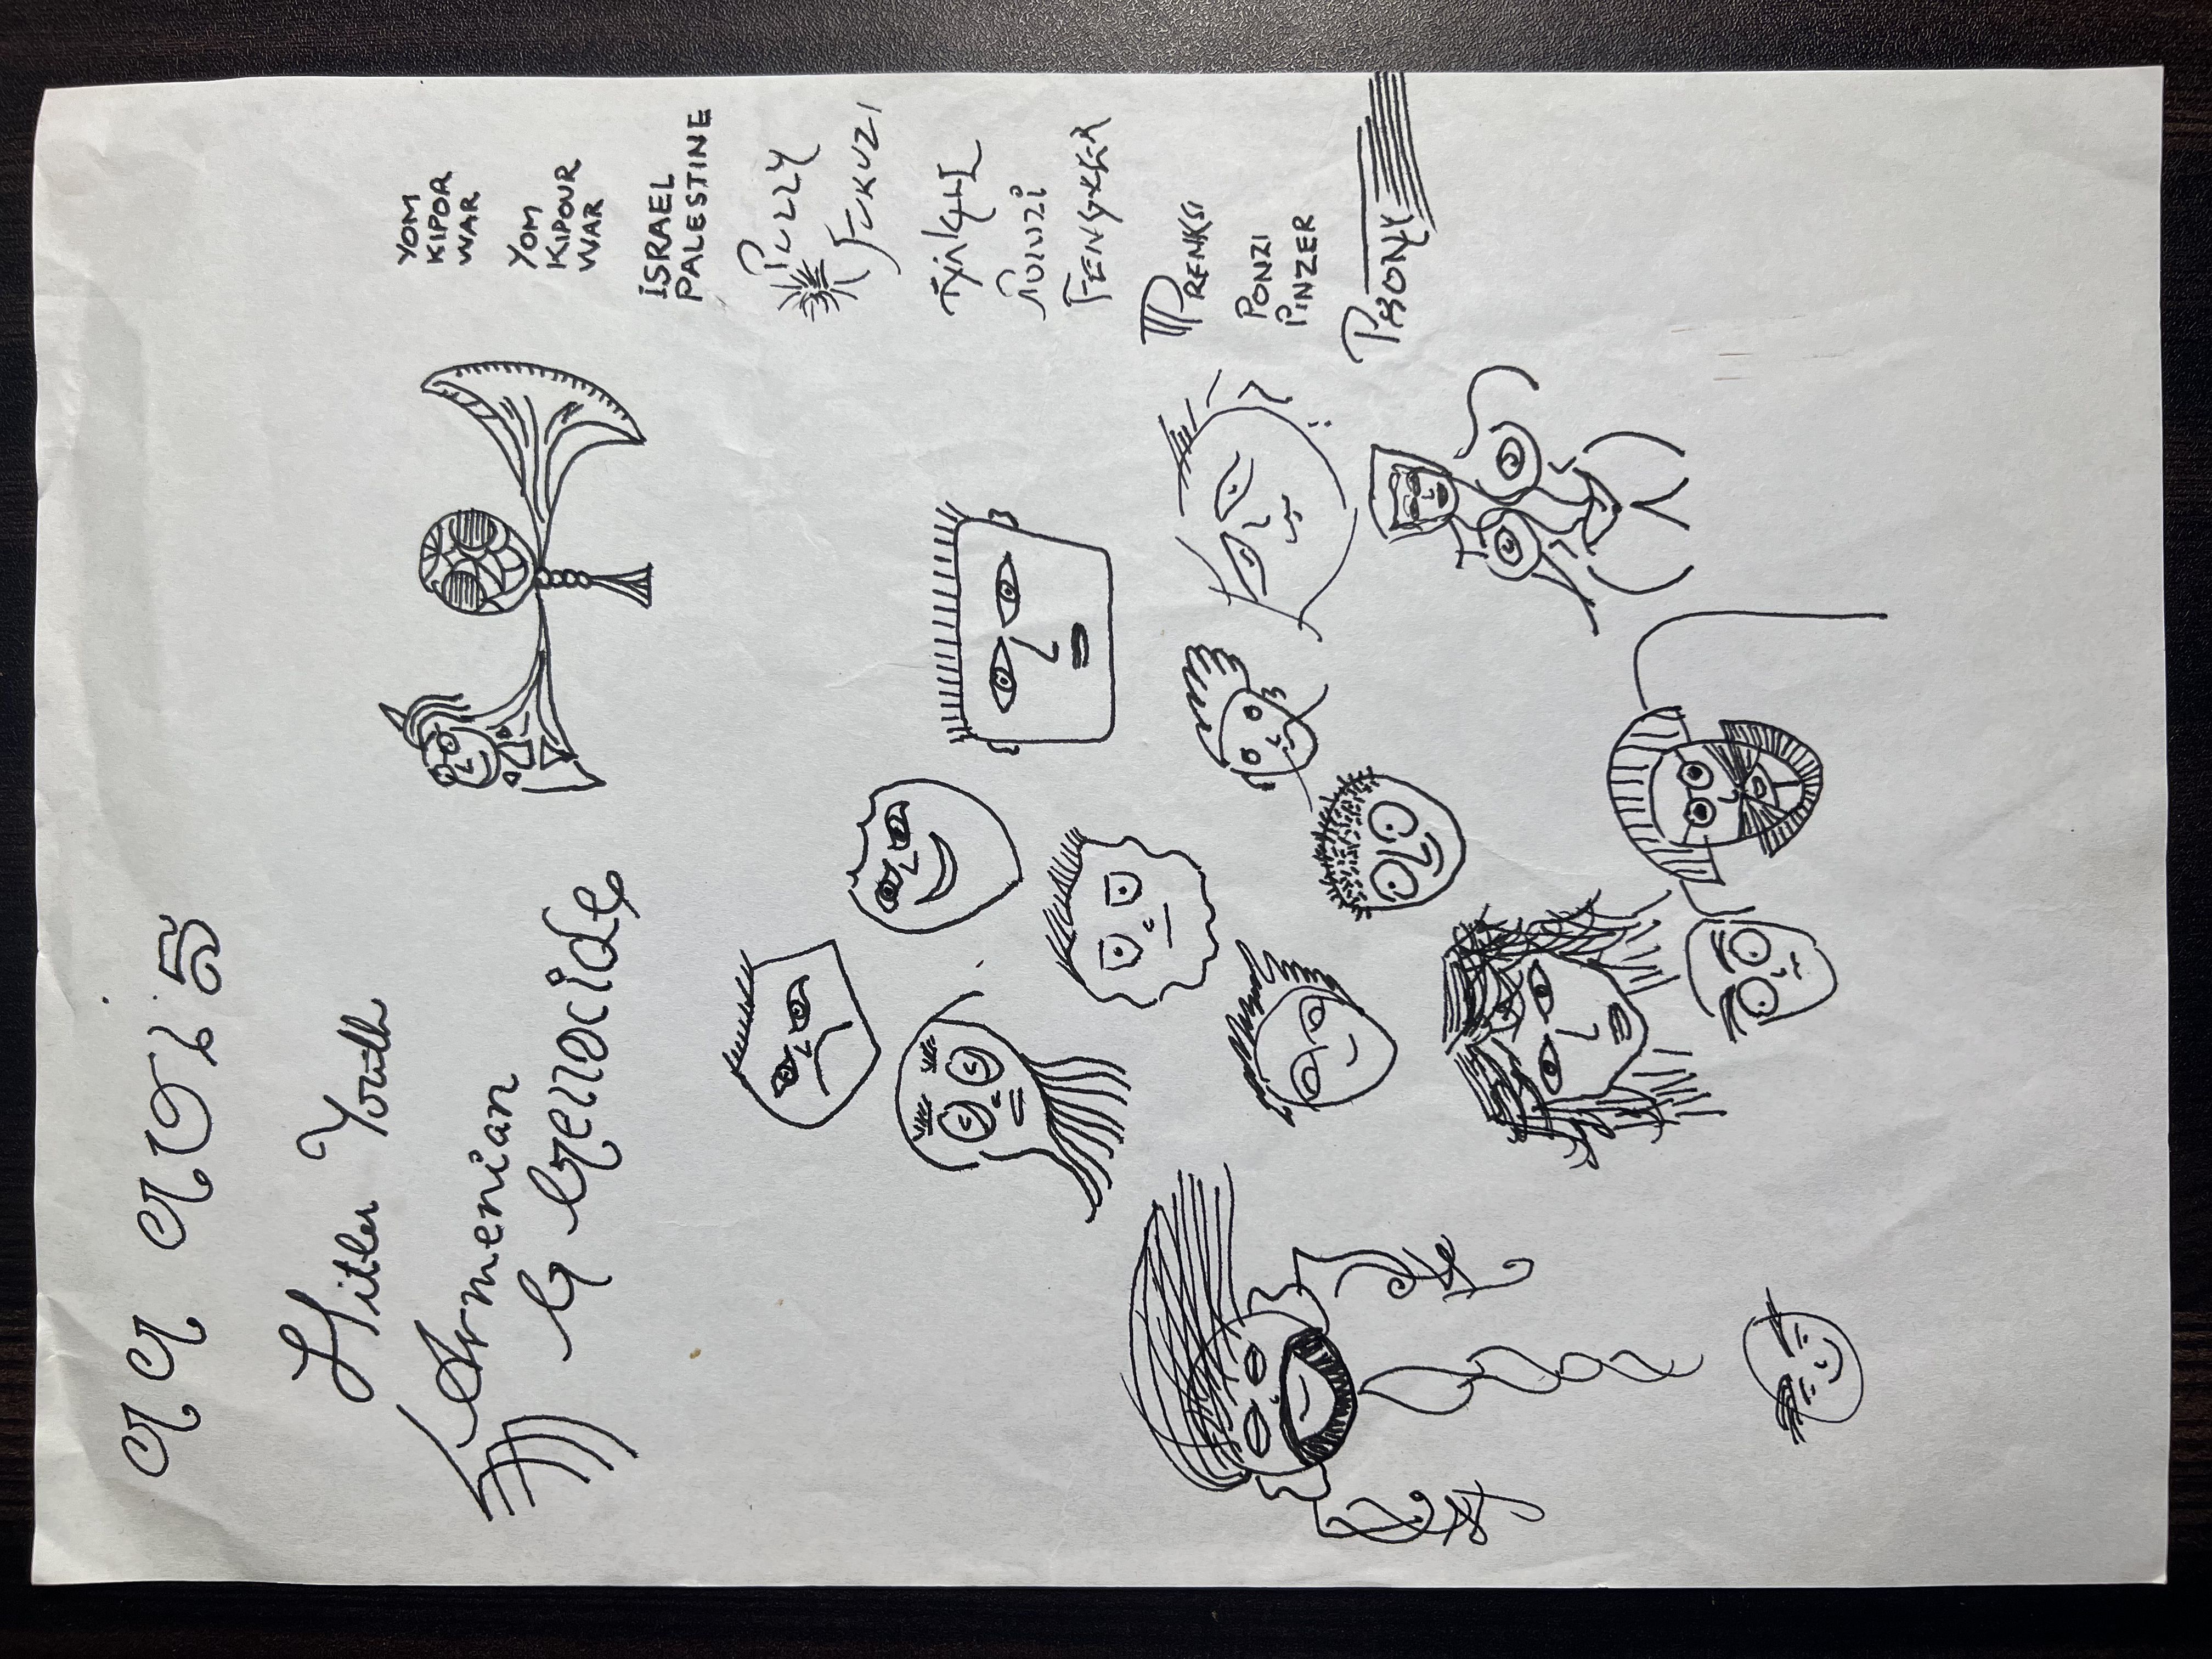 Hitler Youth
Armenian
G Genocide
YOM
KIPOR
WAR
YOM
KIPOUR
WAR
ISRAEL
PALESTINE
PULLY
FUKUZI
PRENKSI
PONZI
PINZER
PHONY